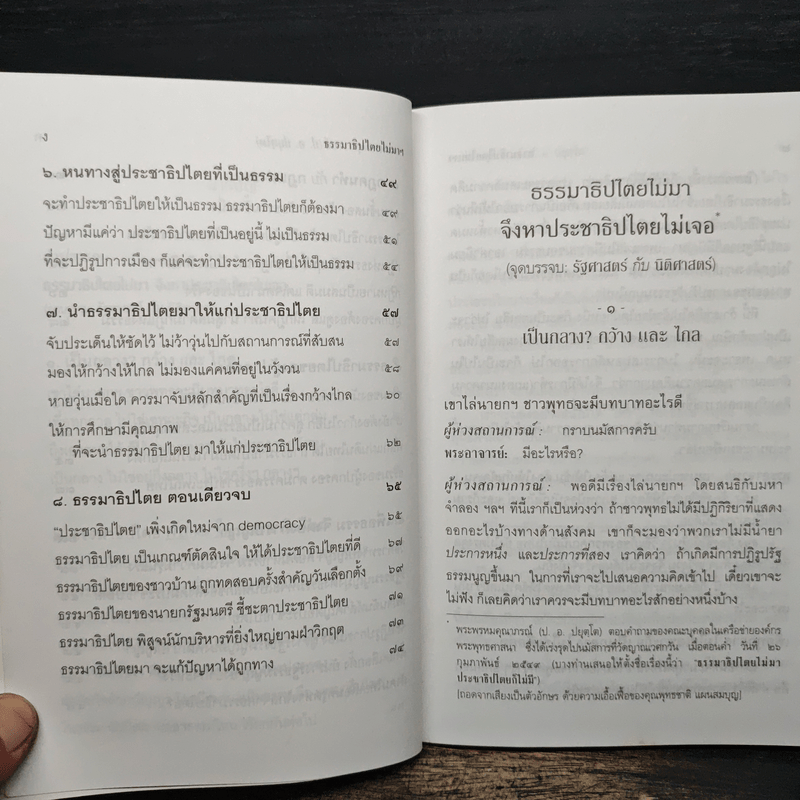 ง
ธรรมาธิปไตยไม่มาฯ
๖. หนทางสู่ประชาธิปไตยที่เป็นธรรม ๔๙
จะทำประชาธิปไตยให้เป็นธรรม ธรรมาธิปไตยก็ต้องมา ๔๙
ปัญหามีแค่ว่า ประชาธิปไตยที่เป็นอยู่นี้ ไม่เป็นธรรม ๕๑
ที่จะปฏิรูปการเมือง ก็แค่จะทำประชาธิปไตยให้เป็นธรรม ๕๔
๗. นำธรรมาธิปไตยมาให้แก่ประชาธิปไตย ๕๗
จับประเด็นให้ชัดไว้ ไม่ว้าวุ่นไปกับสถานการณ์ที่สับสน ๕๗
มองให้กว้างให้ไกล ไม่มองแค่คนที่อยู่ในวังวน ๕๘
หายวุ่นเมื่อใด ควรมาจับหลักสำคัญที่เป็นเรื่องกว้างไกล ๖๐
ให้การศึกษามีคุณภาพ
ที่จะนำธรรมาธิปไตย มาให้แก่ประชาธิปไตย ๖๒
๘. ธรรมาธิปไตย ตอนเดียวจบ ๖๕
"ประชาธิปไตย" เพิ่งเกิดใหม่จาก democracy ๖๕
ธรรมาธิปไตย เป็นเกณฑ์ตัดสินใจ ให้ได้ประชาธิปไตยที่ดี ๖๗
ธรรมาธิปไตยของชาวบ้าน ถูกทดสอบครั้งสำคัญวันเลือกตั้ง ๖๙
ธรรมาธิปไตยของนายกรัฐมนตรี ชี้ชะตาประชาธิปไตย ๗๑
ธรรมาธิปไตย พิสูจน์นักบริหารที่ยิ่งใหญ่ยามฝ่าวิกฤต ๗๓
ธรรมาธิปไตยมา จะแก้ปัญหาได้ถูกทาง ๗๔
ธรรมาธิปไตยไม่มา
จึงหาประชาธิปไตยไม่เจอ*
(จุดบรรจบ: รัฐศาสตร์ กับ นิติศาสตร์)
- ๑ -
เป็นกลาง? กว้าง และ ไกล
เขาไล่นายกฯ ชาวพุทธจะมีบทบาทอะไรดี
ผู้ห่วงสถานการณ์ : กราบนมัสการครับ
พระอาจารย์: มีอะไรหรือ?
ผู้ห่วงสถานการณ์ : พอดีมีเรื่องไล่นายกฯ โดยสนธิกับมหา
จำลอง ฯลฯ ทีนี้เราก็เป็นห่วงว่า ถ้าชาวพุทธไม่ได้มีปฏิกิริยาที่แสดง
ออกอะไรบ้างทางด้านสังคม เขาก็จะมองว่าพวกเราไม่มีน้ำยา
ประการหนึ่ง และประการที่สอง เราคิดว่า ถ้าเกิดมีการปฏิรูปรัฐ
ธรรมนูญขึ้นมา ในการที่เราจะไปเสนอความคิดเข้าไป เดี๋ยวเขาจะ
ไม่ฟัง ก็เลยคิดว่าเราควรจะมีบทบาทอะไรสักอย่างหนึ่งบ้าง
* พระพรหมคุณาภรณ์ (ป. อ. ปยุตฺโต) ตอบคำถามของคณะบุคคลในเครือข่ายองค์กร
พระพุทธศาสนา ซึ่งได้เร่งรุดไปนมัสการที่วัดญาณเวศกวัน เมื่อตอนค่ำ วันที่ ๒๖
กุมภาพันธ์ ๒๕๔๙ (บางท่านเสนอให้ตั้งชื่อเรื่องนี้ว่า "ธรรมาธิปไตยไม่มา
ประชาธิปไตยก็ไม่มี")
[ถอดจากเสียงเป็นตัวอักษร ด้วยความเอื้อเฟื้อของคุณพุทธชาติ แผนสมบุญ]